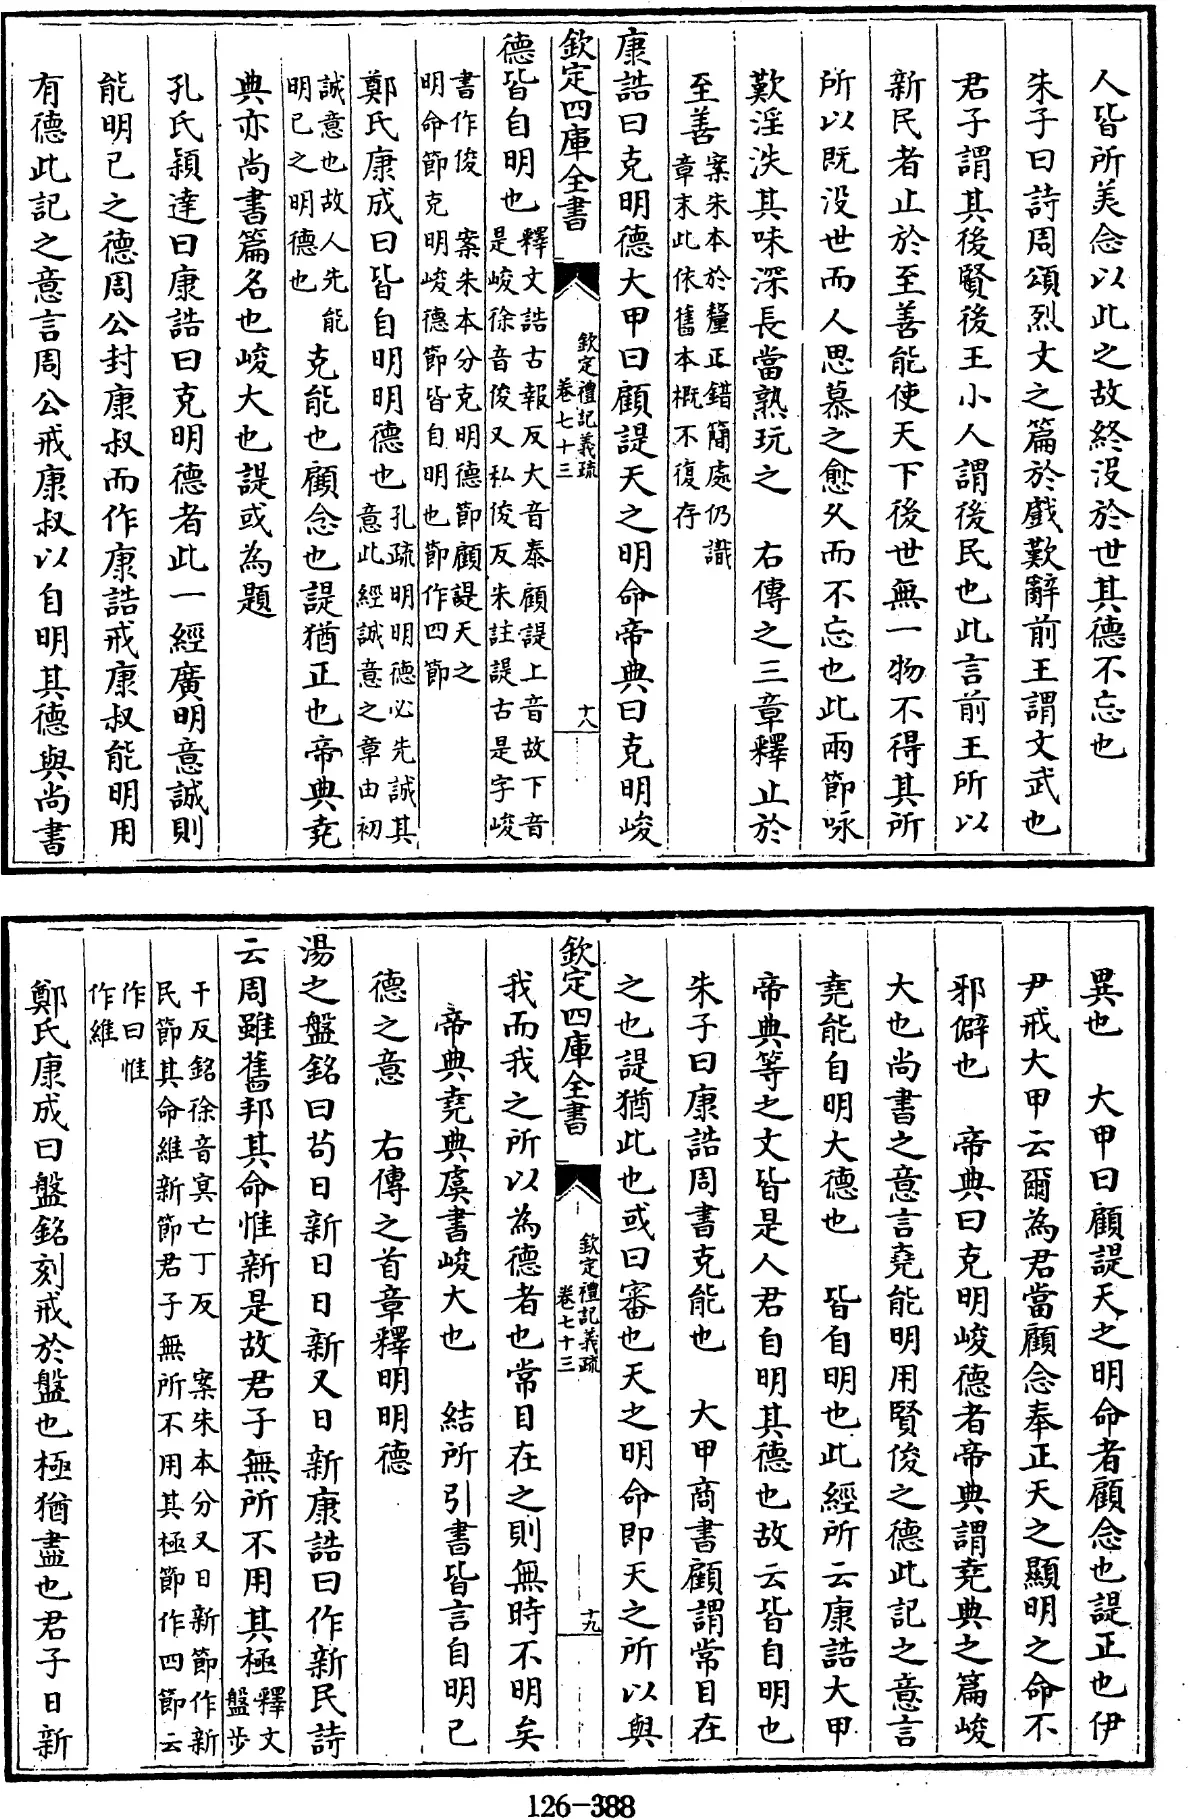 人皆所美念以此之故終沒於世其德不忘也
朱子曰詩周頌烈文之篇於戲歎辭前王謂文武也
君子謂其後賢後王小人謂後民也此言前王所以
新民者止於至善能使天下後世無一物不得其所
所以既沒世而人思慕之愈久而不忘也此兩節咏
歎淫泆其味深長當熟玩之　右傳之三章釋止於
至善案朱本於釐正錯簡處仍識
章末此依舊本概不復存
康誥曰克明德大甲曰顧諟天之明命帝典曰克明峻
欽定四庫全書
欽定禮記義疏
卷七十三
十八
德皆自明也釋文誥古報反大音泰顧諟上音故下音
是峻徐音俊又私俊反朱註諟古是字峻
書作俊　案朱本分克明德節顧諟天之
明命節克明峻德節皆自明也節作四節
鄭氏康成曰皆自明明德也孔疏明明德必先誠其
意此經誠意之章由初
誠意也故人先能
明己之明德也　克能也顧念也諟猶正也帝典堯
典亦尚書篇名也峻大也諟或為題
孔氏穎達曰康誥曰克明德者此一經廣明意誠則
能明已之德周公封康叔而作康誥戒康叔能明用
有德此記之意言周公戒康叔以自明其德與尚書
異也　大甲曰顧諟天之明命者顧念也諟正也伊
尹戒大甲云爾為君當顧念奉正天之顯明之命不
邪僻也　帝典曰克明峻德者帝典謂堯典之篇峻
大也尚書之意言堯能明用賢俊之德此記之意言
堯能自明大德也　皆自明也此經所云康誥大甲
帝典等之文皆是人君自明其德也故云皆自明也
朱子曰康誥周書克能也　大甲商書顧謂常目在
之也諟猶此也或曰審也天之明命即天之所以與
欽定四庫全書
欽定禮記義疏
卷七十三
十九
我而我之所以為德者也常目在之則無時不明矣
帝典堯典虞書峻大也　結所引書皆言自明已
德之意　右傳之首章釋明明德
湯之盤銘曰茍日新日日新又日新康誥曰作新民詩
云周雖舊邦其命惟新是故君子無所不用其極釋文
盤步
干反銘徐音冥亡丁反　案朱本分又日新節作新
民節其命維新節君子無所不用其極節作四節云
作曰惟
作維
鄭氏康成曰盤銘刻戒於盤也極猶盡也君子日新
126-388